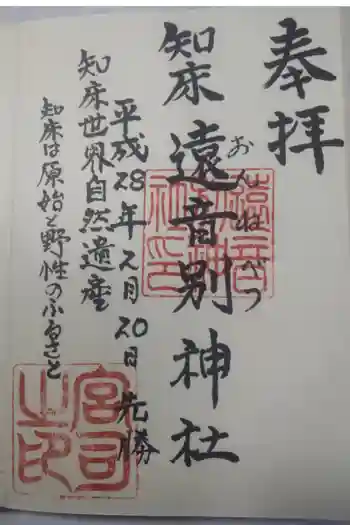 奉拝
知床遠音別神社
おんねべつ
平成28年2月20日先勝
知床世界自然遺産
知床は原始と野性のふるさと
宮司之印